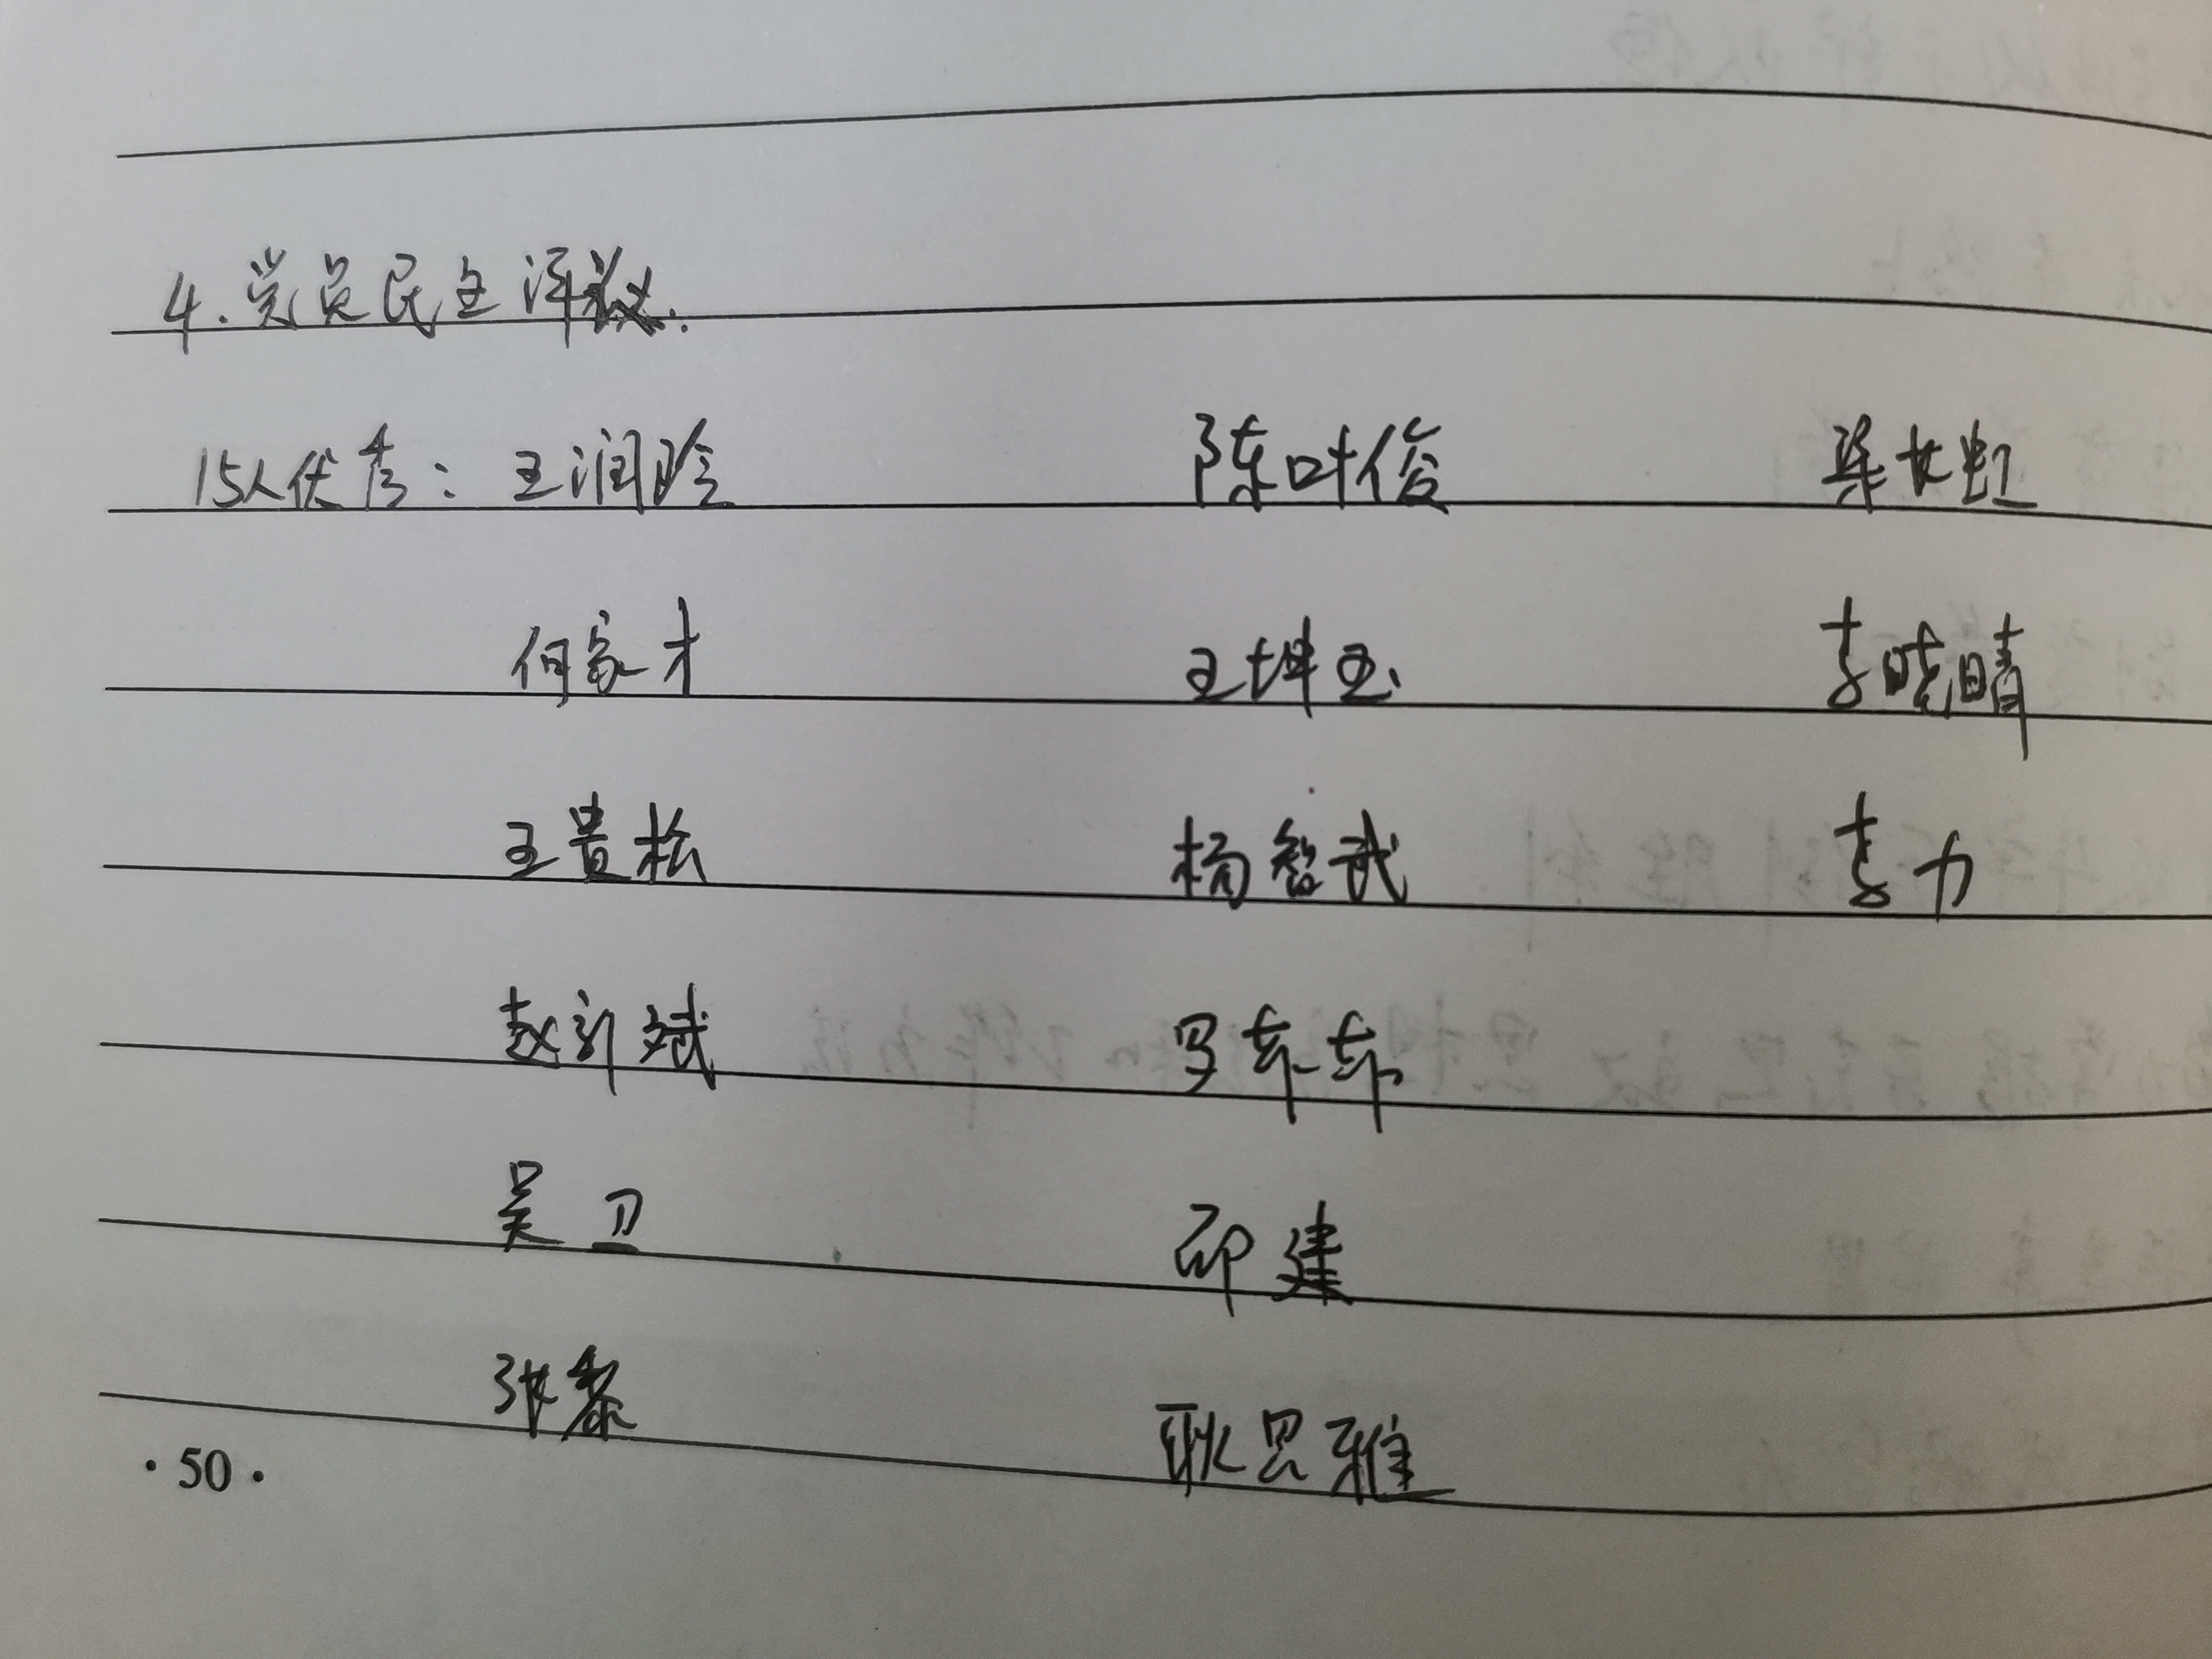 4.党员民主评议.
15人优秀: 王润晗 陈叶俊 梁长虹
何家才 王坤玉 李晓晴
王贵松 杨智武 李力
赵新斌 罗东东
吴卫 邱建
张黎 耿思雅
·50·